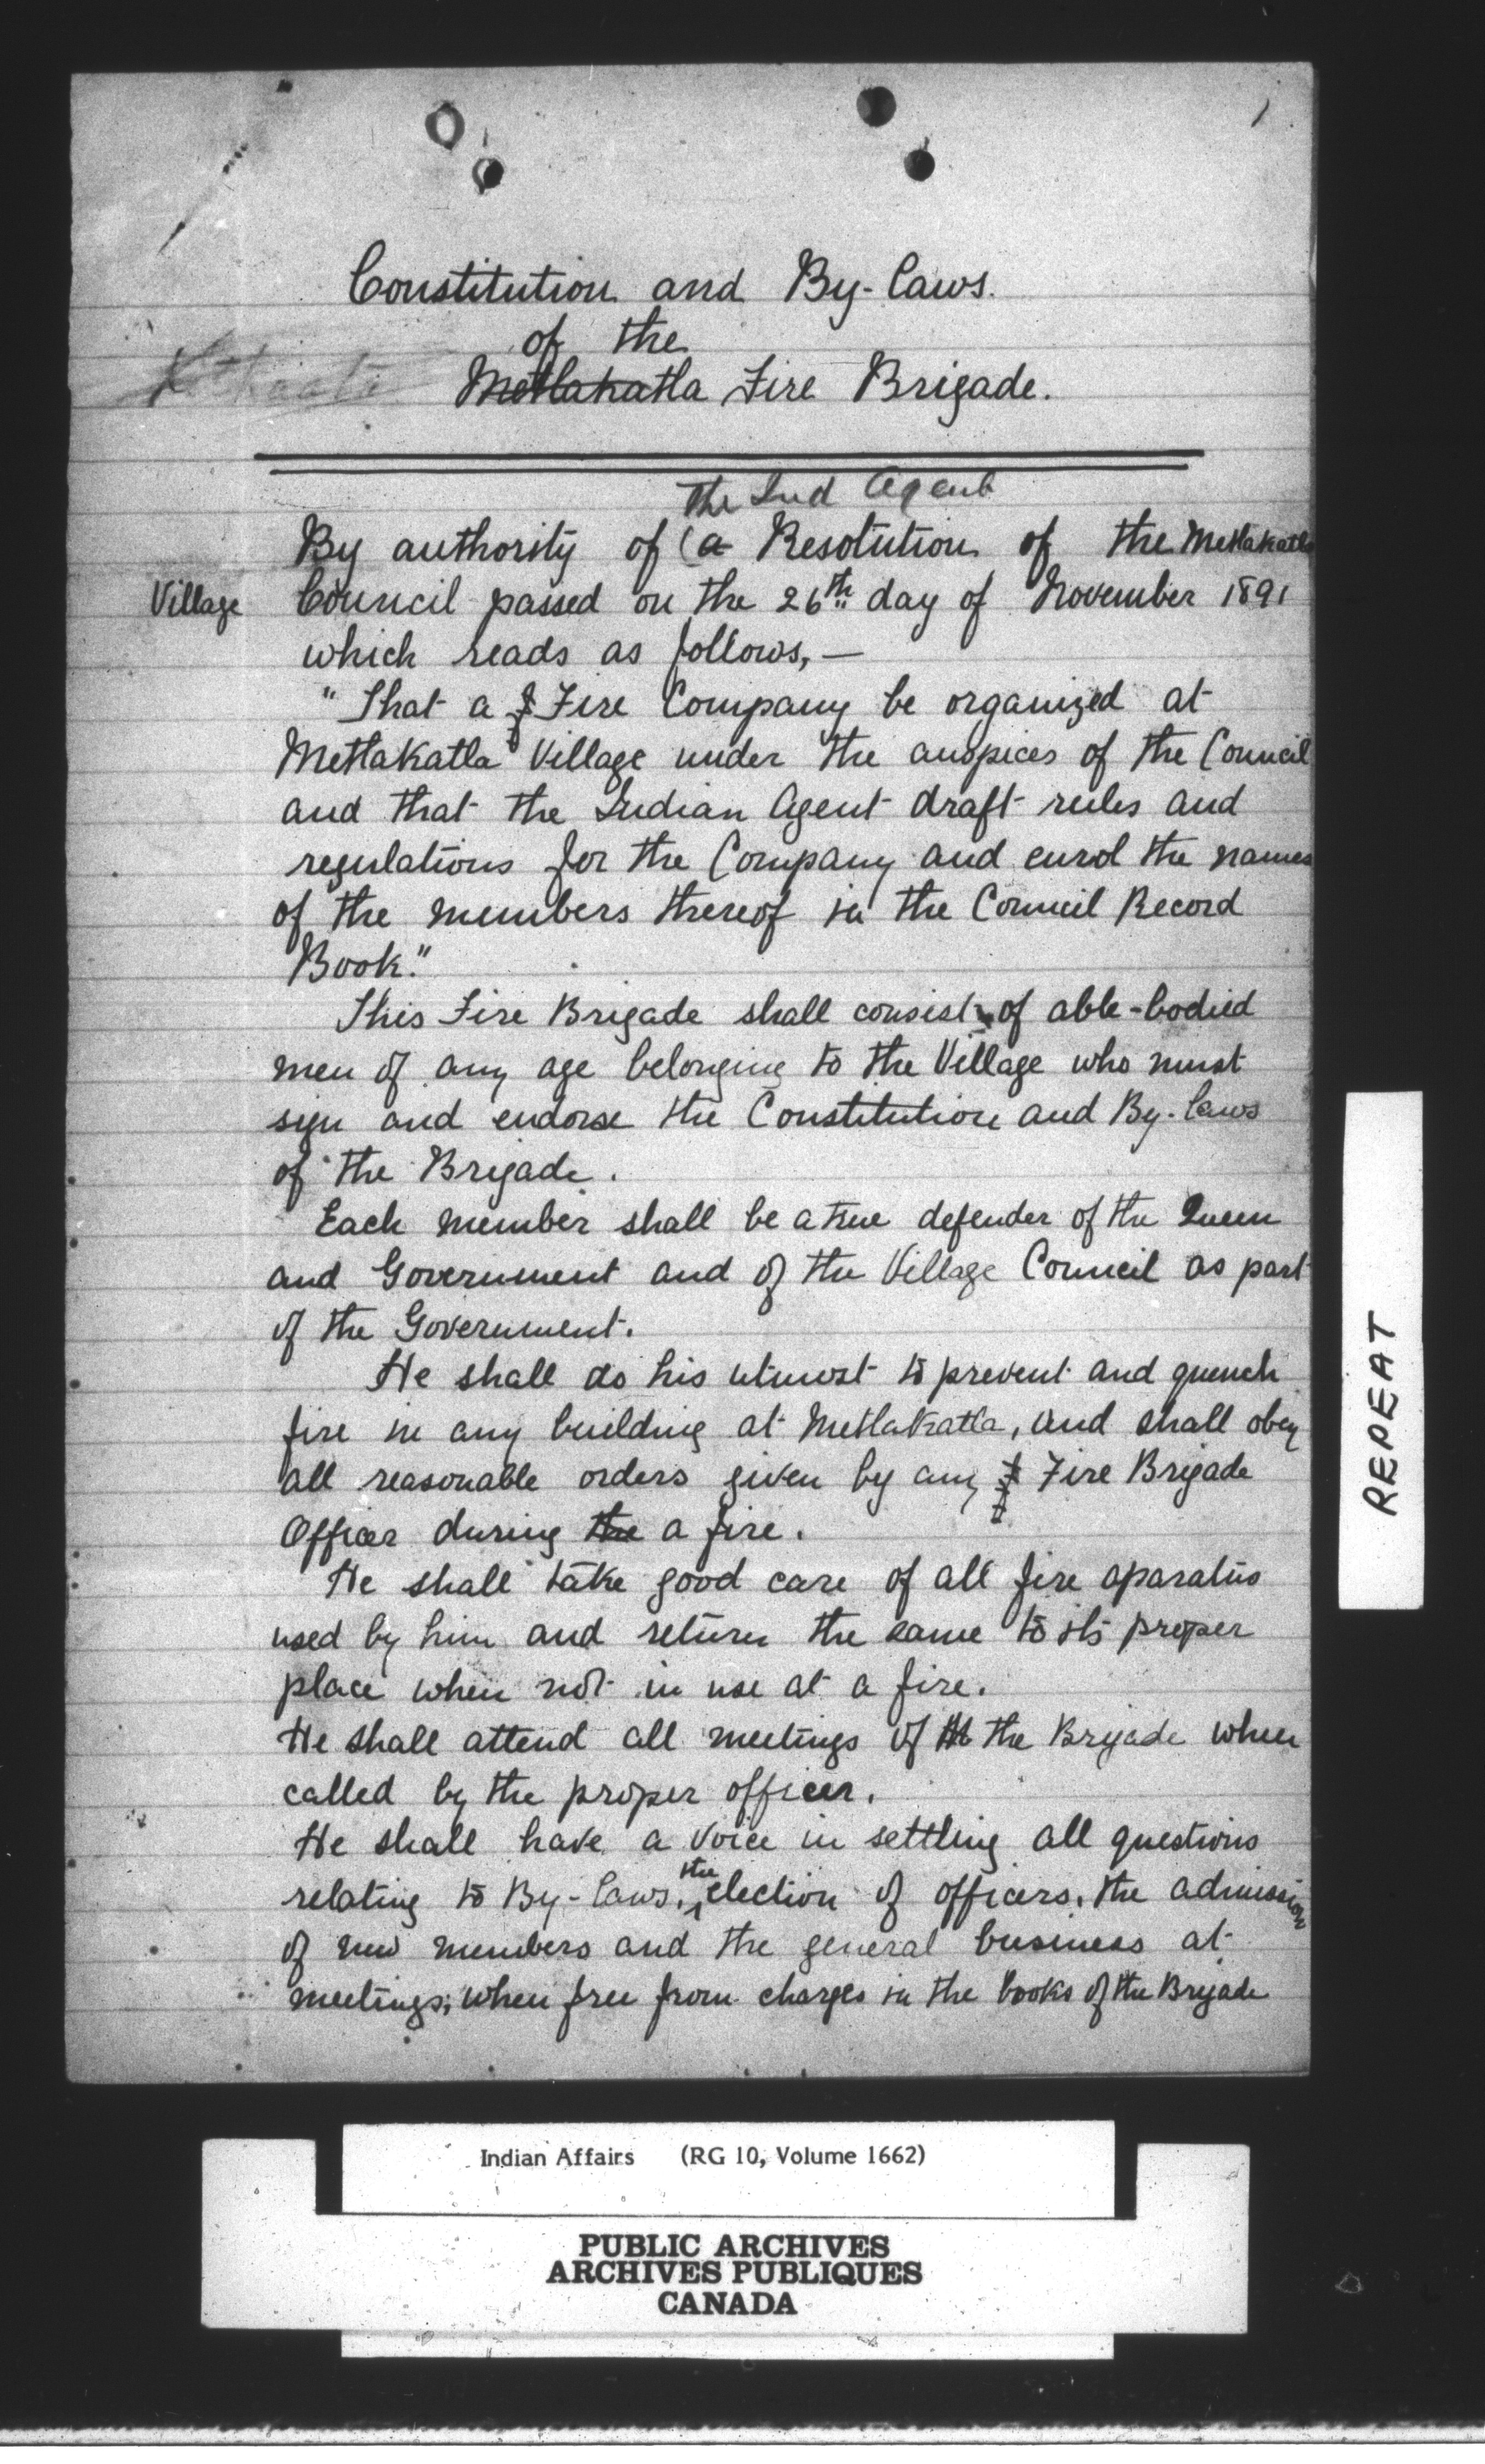 1
Constitution and By-Laws.
of the
Metlakatla Fire Brigade.
The Ind Agent
By authority of (a Resolution of the Metlakatla
Village Council passed on the 26th day of November 1891
which reads as follows,—
"That a f Fire Company be organized at
Metlakatla Village under the auspices of the Council
and that the Indian Agent draft rules and
regulations for the Company and enrol the names
of the members thereof in the Council Record
Book."
This Fire Brigade shall consist of able-bodied
men of any age belonging to the Village who must
sign and endorse the Constitution and By-Laws
of the Brigade.
Each member shall be a true defender of the Queen
and Government and of the Village Council as part
of the Government.
He shall do his utmost to prevent and quench
fire in any building at Metlakatla, and shall obey
all reasonable orders given by any f Fire Brigade
Officer during the a fire.
He shall take good care of all fire aparatus
used by him and return the same to its proper
place when not in use at a fire.
He shall attend all meetings of the the Brigade when
called by the proper officer.
He shall have a voice in settling all questions
relating to By-Laws, the election of officers, the admission
of new members and the general business at
meetings; when free from charges in the books of the Brigade
REPEAT
Indian Affairs (RG 10, Volume 1662)
PUBLIC ARCHIVES
ARCHIVES PUBLIQUES
CANADA